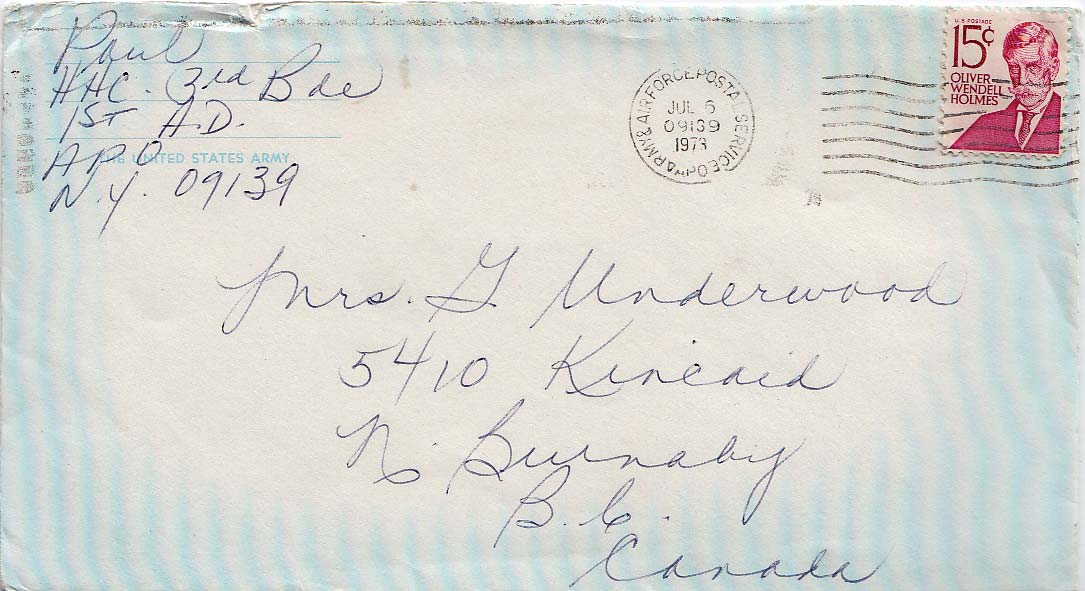 Paul
HHC. 3rd Bde
1ST A.D.
THE UNITED STATES ARMY
A.P.O
N.Y. 09139
ARMY & AIR FORCE POSTAL SERVICE
APO
JUL 6
09139
1973
U S POSTAGE
15¢
OLIVER
WENDELL
HOLMES
Mrs. G Underwood
5410 Kincaid
N. Burnaby
B.C.
Canada